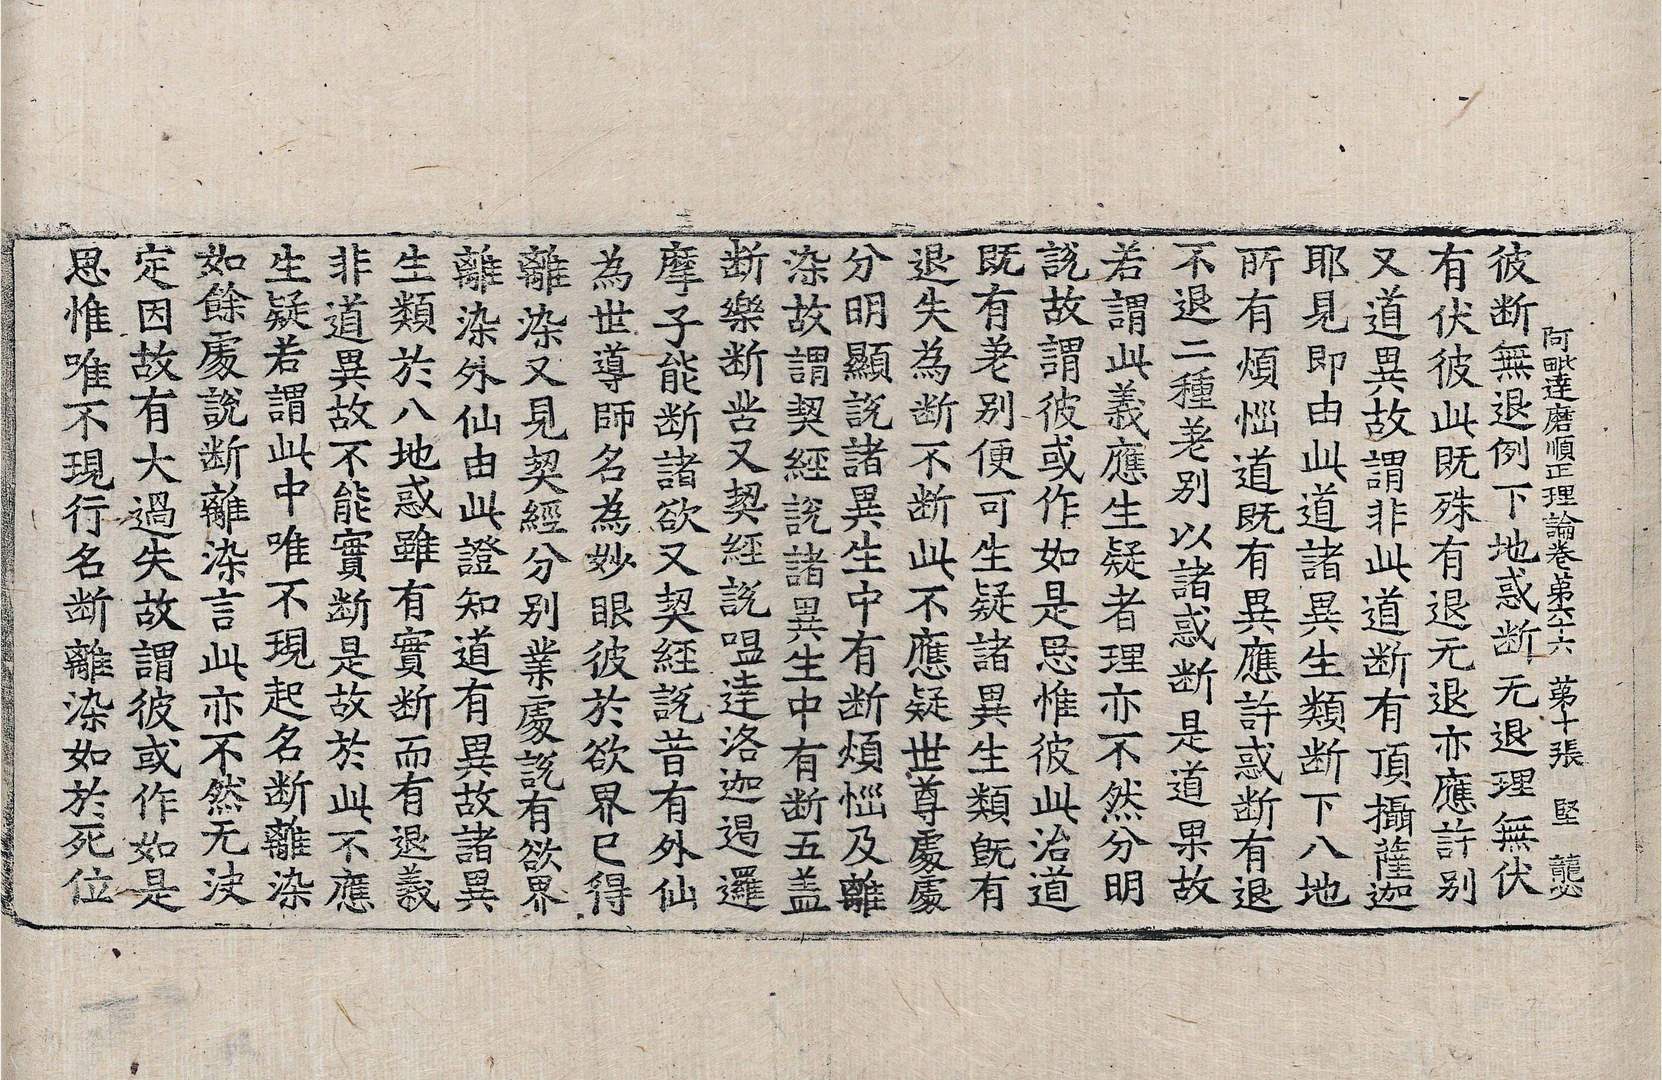 阿毗達磨順正理論卷第六十六 第十張 堅 龔㳒
彼断無退例下地惑断无退理無伏
有伏彼此既殊有退无退亦應許别
又道異故謂非此道断有頂攝薩迦
耶見即由此道諸異生類断下八地
所有煩惱道既有異應許惑断有退
不退二種差别以諸惑断是道果故
若謂此義應生疑者理亦不然分明
說故謂彼或作如是思惟彼此治道
既有差别便可生疑諸異生類既有
退失為断不断此不應疑世尊處處
分明顯說諸異生中有断煩惱及離
染故謂契經說諸異生中有断五盖
断樂断苦又契經說嗢達洛迦遏邏
摩子能断諸欲又契經說昔有外仙
為世導師名為妙眼彼於欲界已得
離染又見契經分别業處說有欲界
離染外仙由此證知道有異故諸異
生類於八地惑雖有實断而有退義
非道異故不能實断是故於此不應
生疑若謂此中唯不現起名断離染
如餘處說断離染言此亦不然无決
定因故有大過失故謂彼或作如是
思惟唯不現行名断離染如於死位